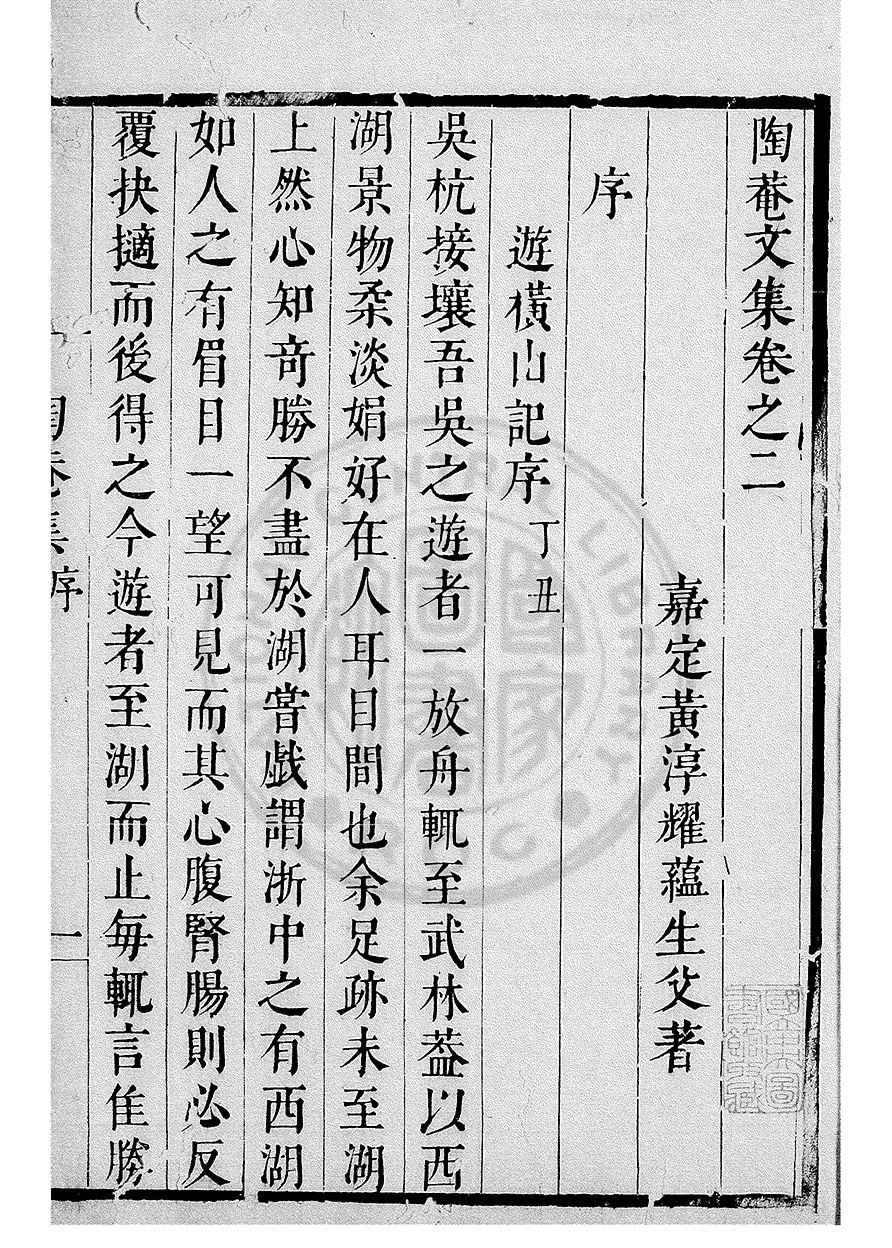 陶菴文集卷之二
嘉定黃淳耀蘊生父著
序
遊橫山記序丁丑
吳杭接壤吾吳之遊者一放舟輒至武林葢以西
湖景物柔淡娟好在人耳目間也余足跡未至湖
上然心知竒勝不盡於湖嘗戲謂浙中之有西湖
如人之有眉目一望可見而其心腹腎腸則必反
覆抉擿而後得之今遊者至湖而止每輒言隹勝
陶菴集序
一
國家圖書館
CENTRAL LIBRARY